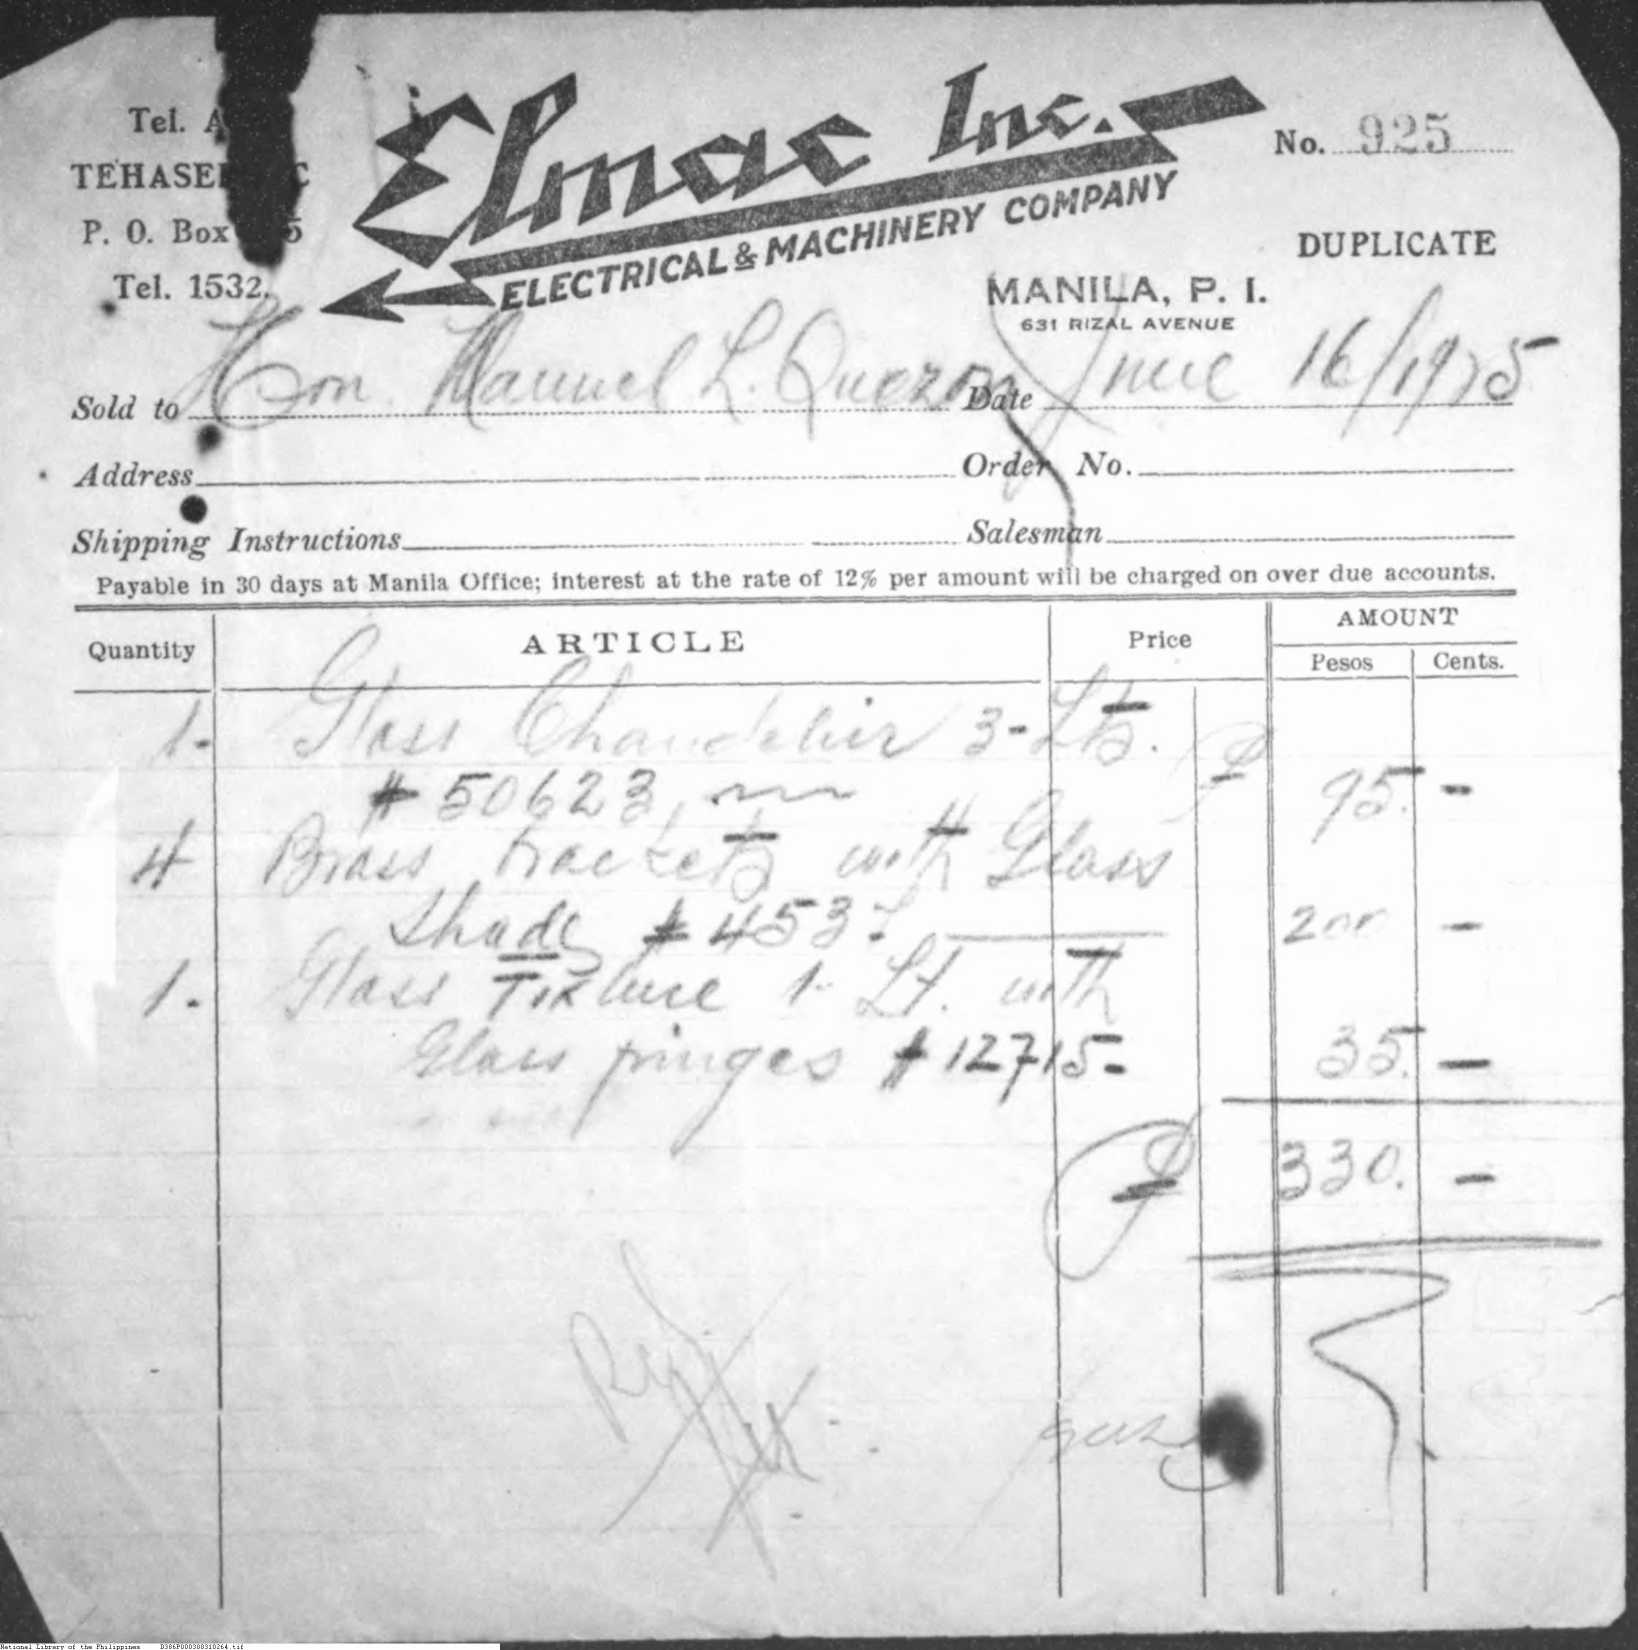 Tel.
TEHASE
P. O. Box
Tel. 1532.
Elmac Inc.
ELECTRICAL & MACHINERY COMPANY
MANILA, P. I.
631 RIZAL AVENUE
No. 925
DUPLICATE
Sold to Hon. Manuel L. Quezon Date June 16/1925
Address Order No.
Shipping Instructions Salesman
Payable in 30 days at Manila Office; interest at the rate of 12% per amount will be charged on over due accounts.
Quantity ARTICLE Price AMOUNT
Pesos Cents.
1- Glass Chandelier 3-Lts.
# 50623, ₱ 95. -
4 Brass brackets with Glass
Shade # 453 200 -
1. Glass Fixture 1- Lt. with
Glass fringes # 12715- 35. -
₱ 330. -
National Library of the Philippines D386P000308310264.tif